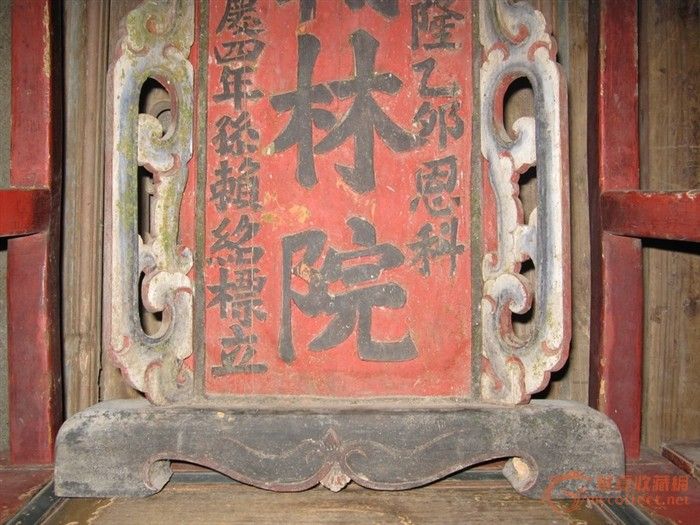 隆乙卯恩科
翰林院
慶四年孫賴紹標立
華夏收藏網